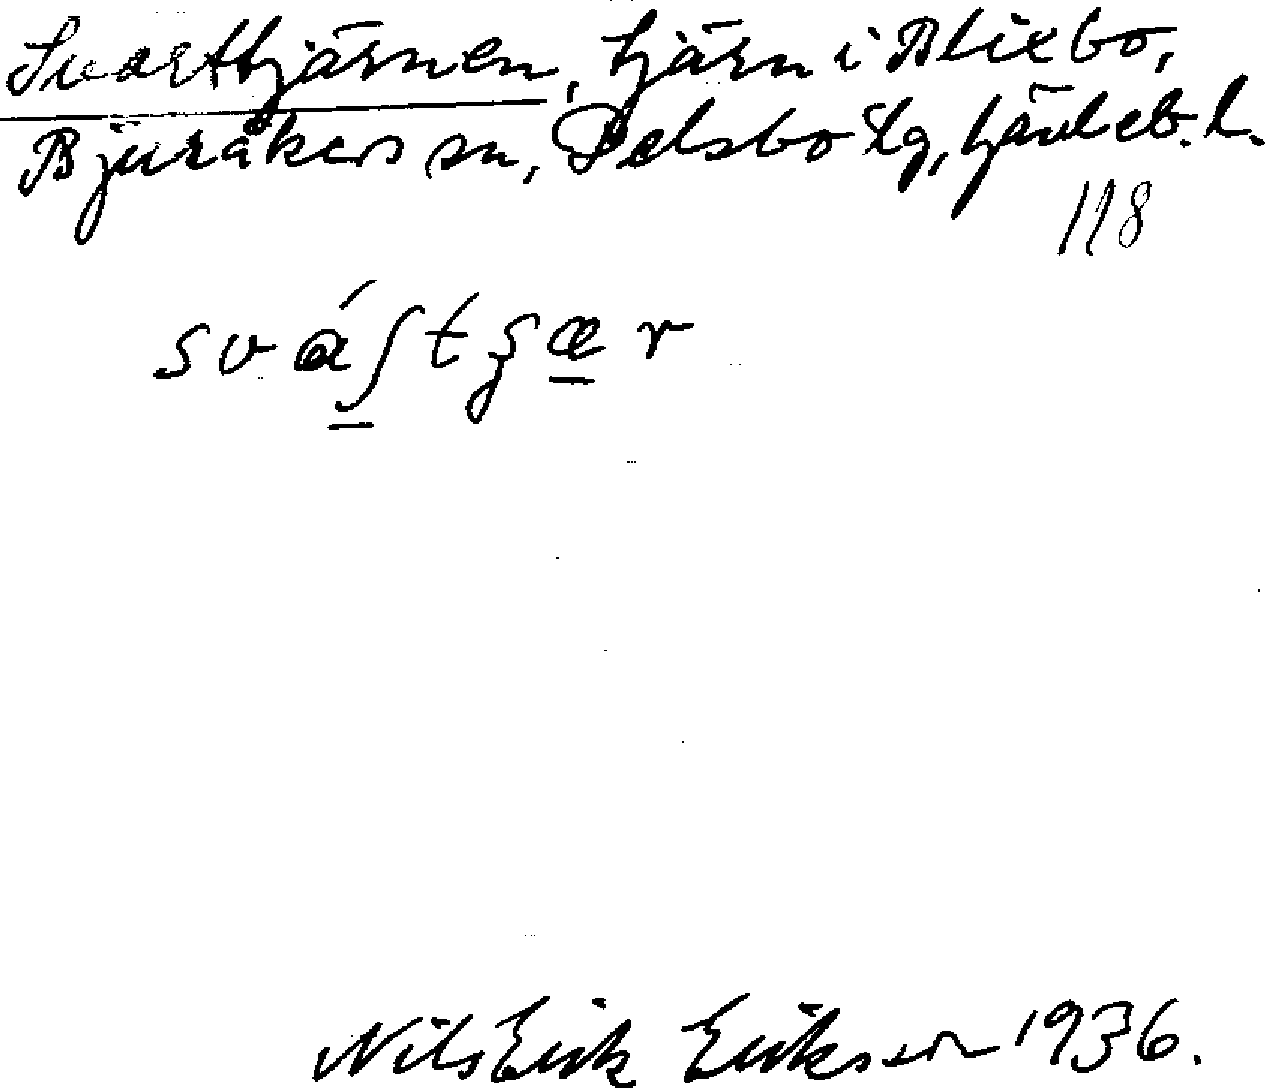 Svarttjärnen, tjärn i Blixbo,
Bjuråkers sn, Delsbo tg, Gävleb. l.
118
sváʃtʒær
Nils Erik Eriksson 1936.